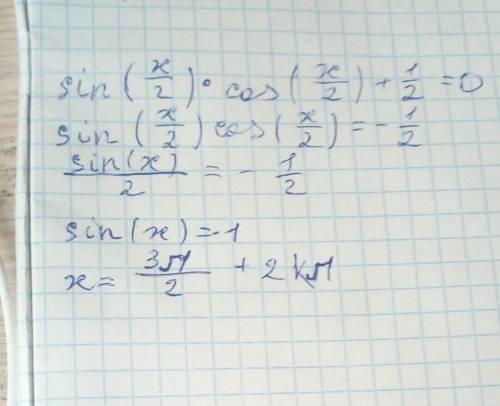 sin(x/2)·cos(x/2)+1/2=0
sin(x/2)cos(x/2)=-1/2
sin(x)/2=-1/2
sin(x)=-1
x=3π/2+2kπ